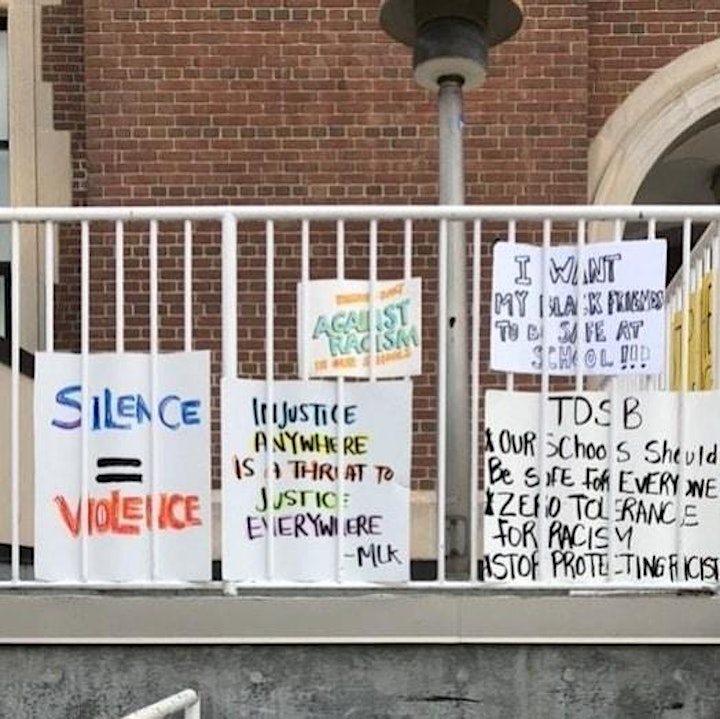 SILENCE
=
VIOLENCE
INJUSTICE
ANYWHERE
IS A THREAT TO
JUSTICE
EVERYWHERE
-MLK
AGAINST
RACISM
IN OUR SCHOOLS
I WANT
MY BLACK FRIENDS
TO BE SAFE AT
SCHOOL!!!
TDSB
* OUR SCHOOLS Should
Be SAFE FOR EVERYONE
* ZERO TOLERANCE
FOR RACISM
* STOP PROTECTING RACIST